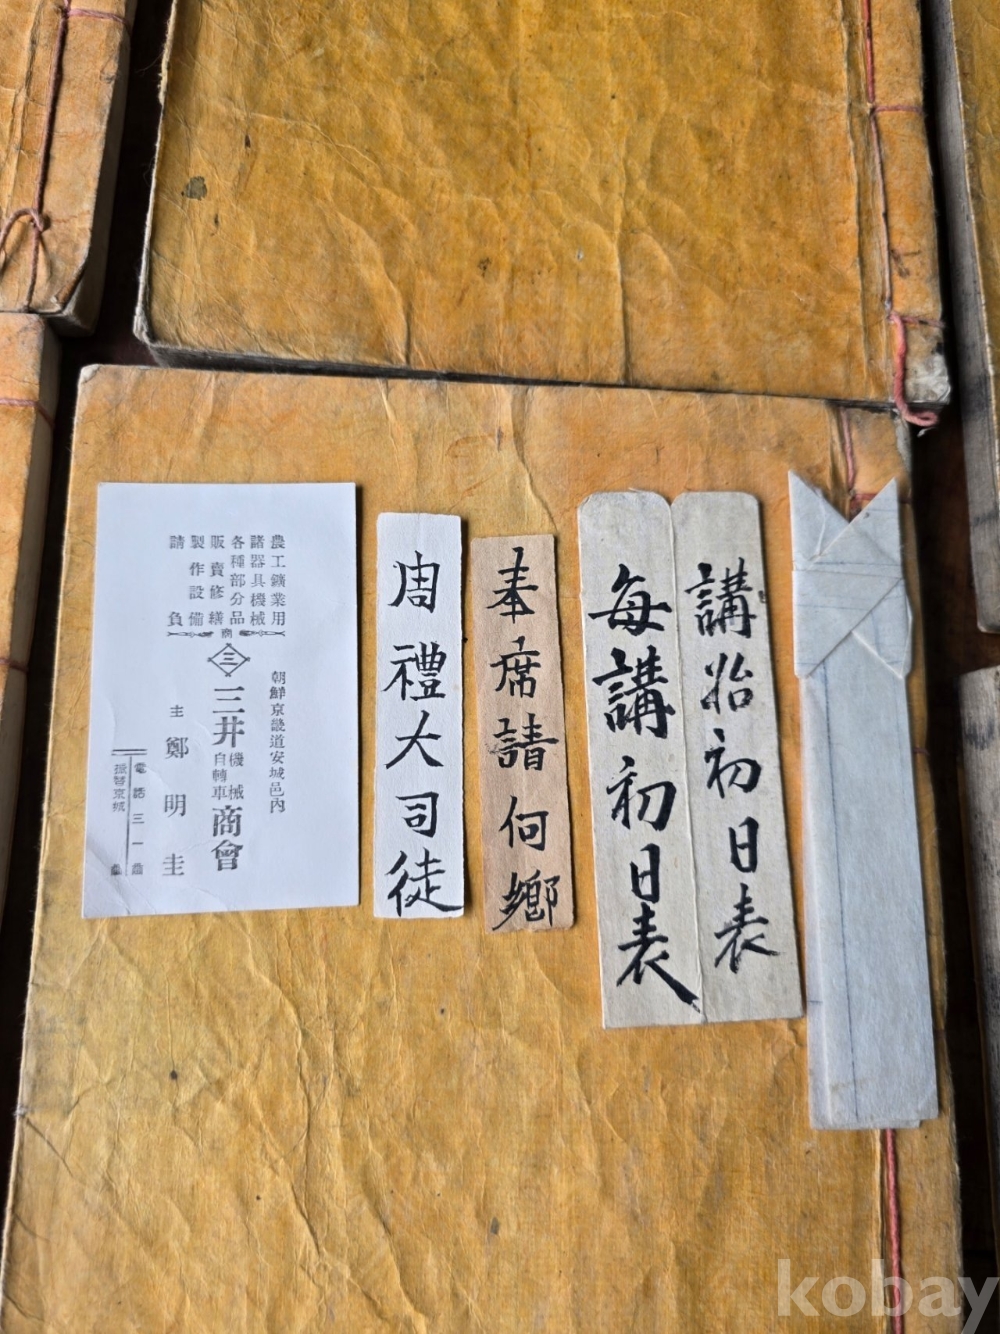 農工鑛業用
諸器具機械
各種部分品
販賣修繕
製作設備
請負
商
三
朝鮮京畿道安城邑內
三井機械自轉車商會
主 鄭明圭
電話三一番
振替京城
周禮大司徒
奉席請何鄉
每講初日表
講始初日表
kobay